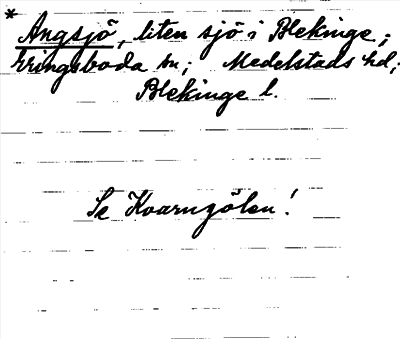 * Angsjö, liten sjö i Blekinge;
Eringsboda sn; Medelstads hd;
Blekinge l.
Se Kvarngölen!